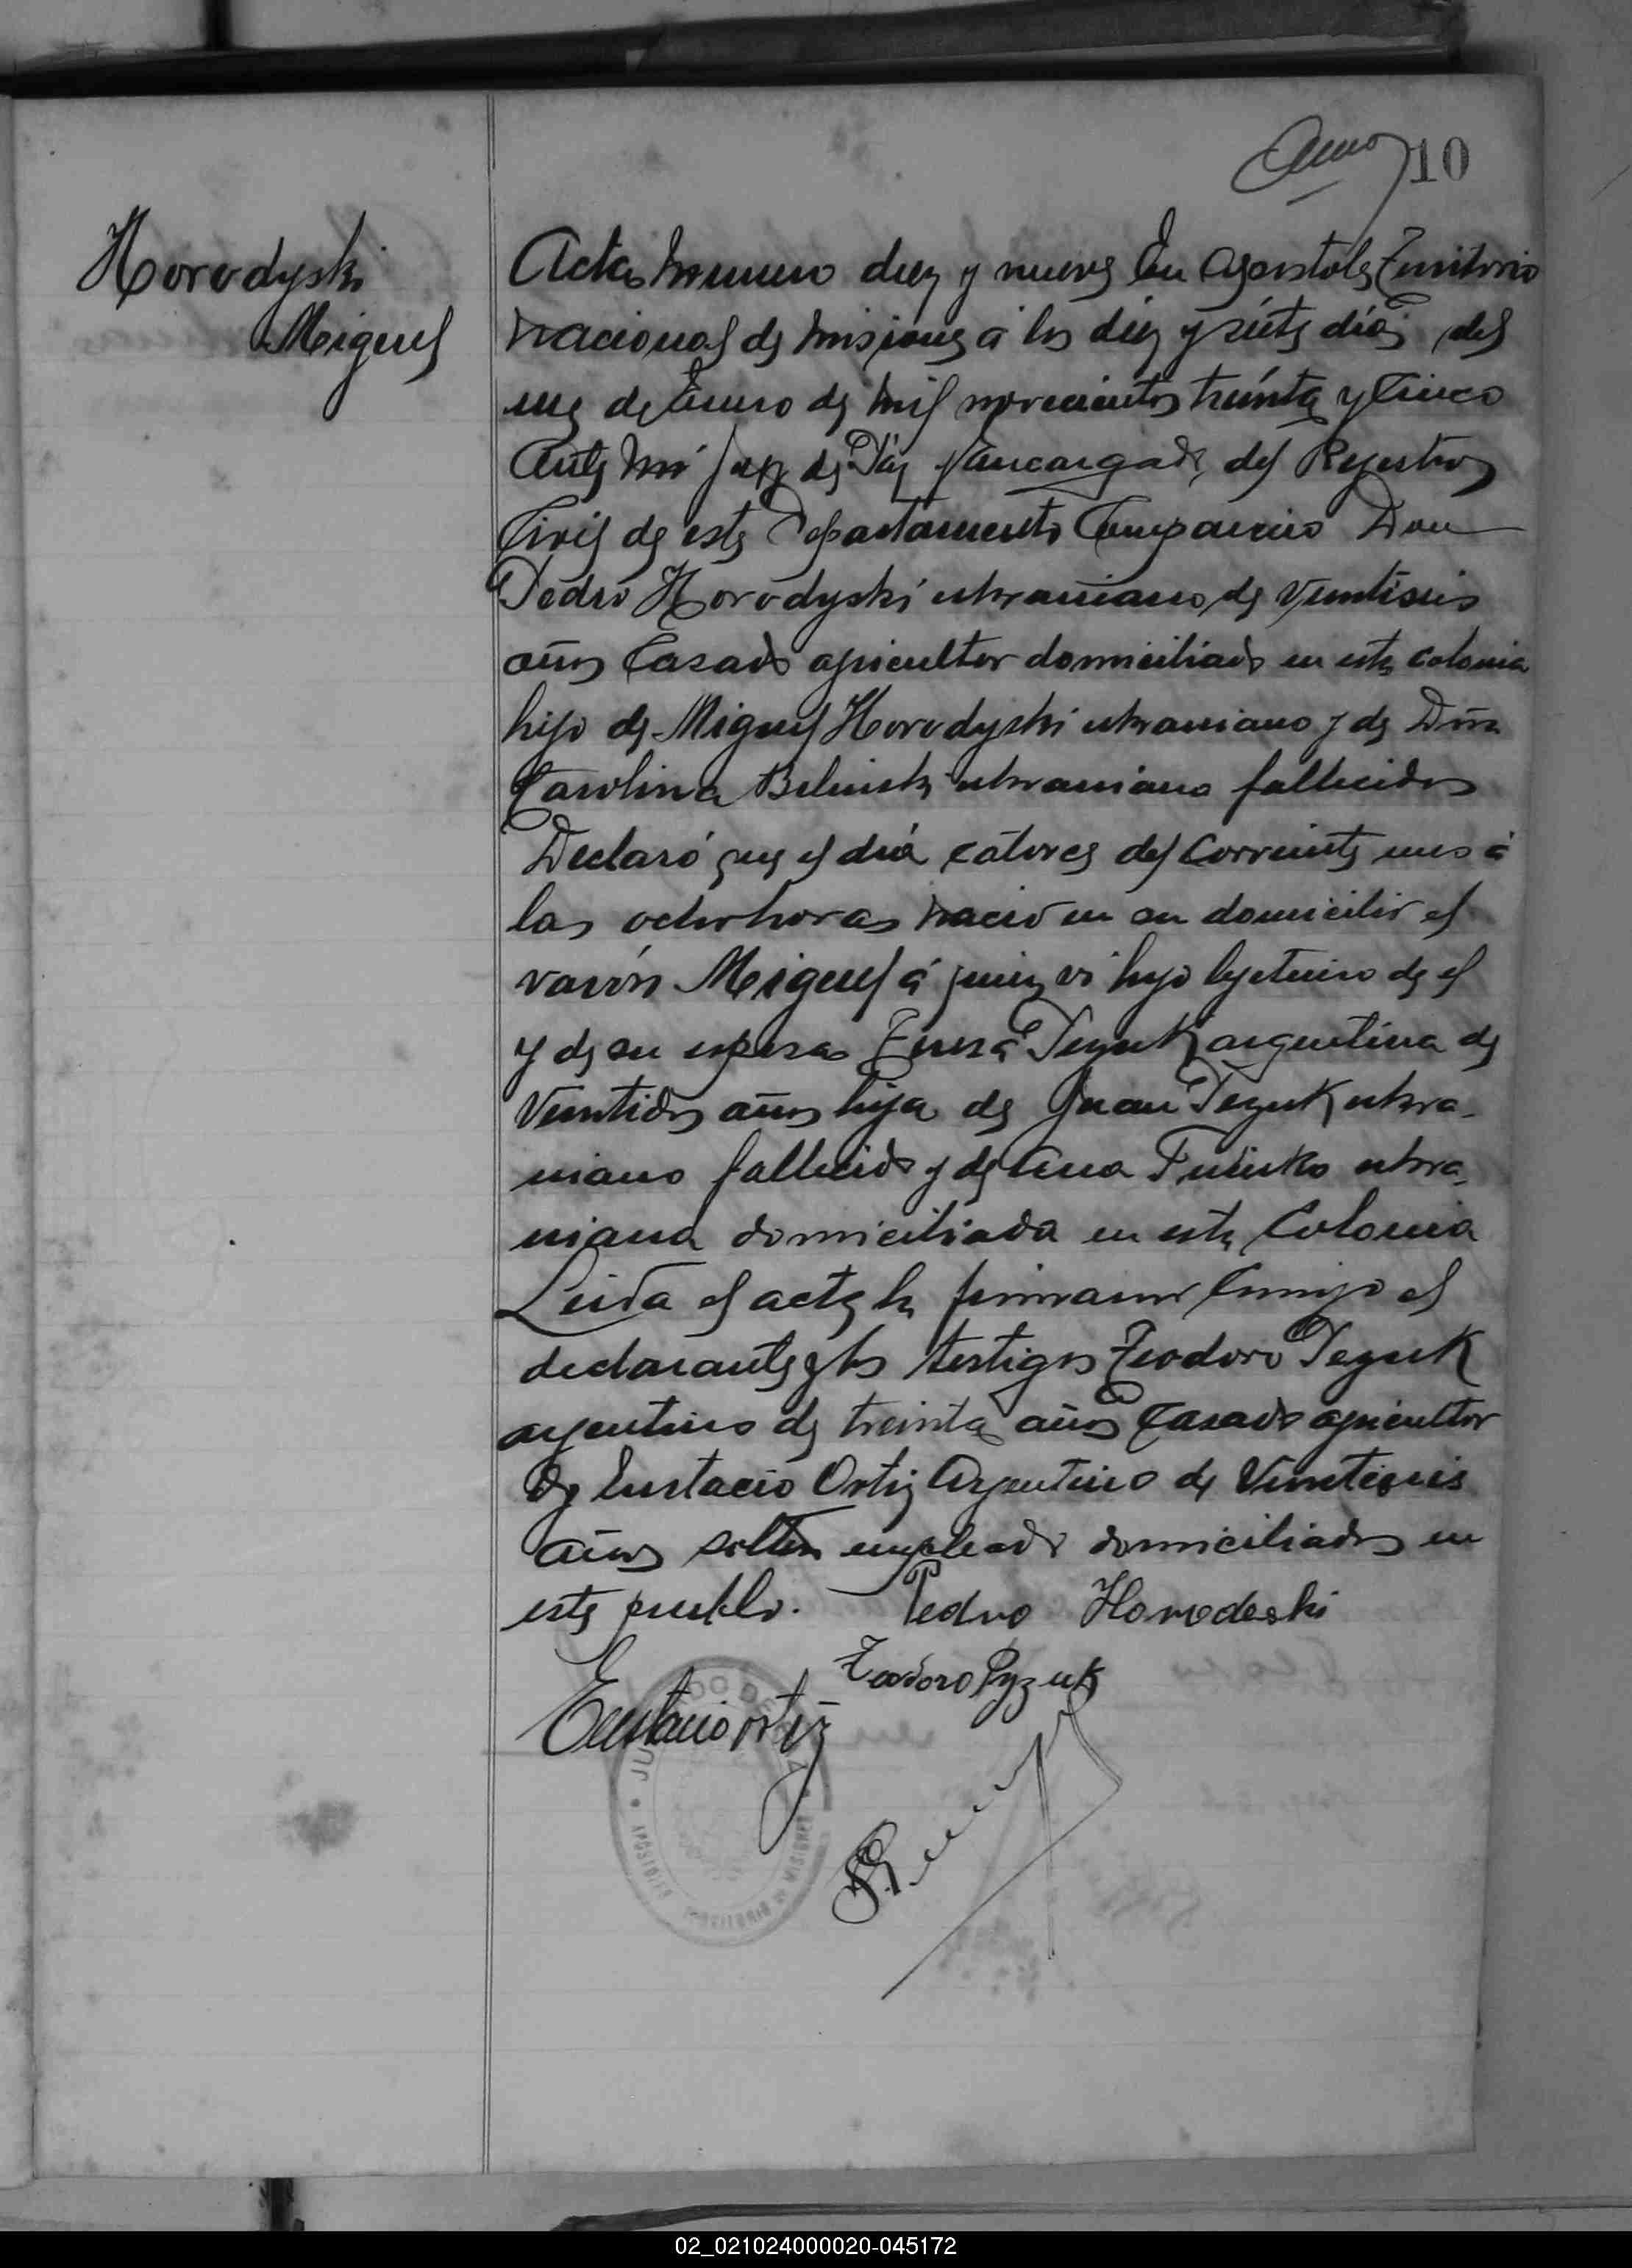 10
Horodyski
Miguel
Acta numero diez y nueve En Apostoles Territorio
nacional de Misiones á los diez y siete días del
mes de Enero de mil novecientos treinta y Cinco
Ante mi Juez de Paz y encargado del Rejestro
Civil de este Departamento Comparecio Don
Pedro Horodyski ukraniano de veintiseis
años Casado agricultor domiciliado en esta colonia
hijo de Miguel Horodyski ukraniano y de Dña
Carolina ukraniano fallecidos
Declaró que el día catorce del corriente mes á
las ocho horas nacio en su domicilio el
varón Miguel á quien vi hijo lejetimo de el
y de su esposa argentina de
Veintidos años hija de Juan ukra-
niano fallecido y de Ana ukra-
niana domiciliada en esta Colonia
Leida el acta la firmaron Conmigo el
declarante y los testigos Teodoro
argentino de treinta años Casado agricultor
y Eustacio Ortiz Argentino de Veintiseis
años soltero empleado domiciliados en
este pueblo. Pedro Horodeski
Teodoro Pyzuk
Eustacio ortiz
JUZGADO DE PAZ
APOSTOLES
TERRITORIO DE MISIONES
02_021024000020-045172